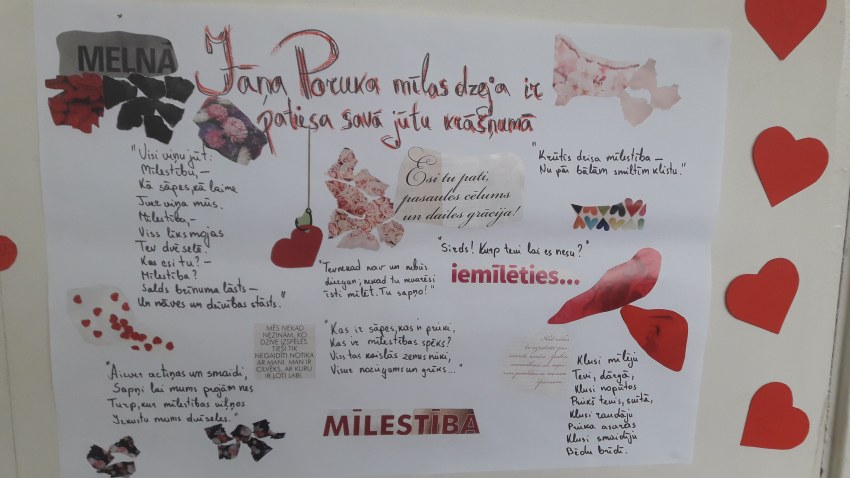 MELNĀ
Jāņa Poruka mīlas dzeja ir
patiesa savā jūtu krāšņumā
"Visi viņu jūt:
Mīlestību, –
Kā sāpes, kā laime
Jūs viņa mūs.
Mīlestība, –
Viss līksmojas
Tev dvēselē.
Kas esi tu? –
Mīlestība?
Salds brīnuma lāsts –
Un nāves un dzīvības stāsts."
Esi tu pati,
pasaules cēlums
un dailes grācija!
"Krūtīs dzisa mīlestība –
Nu pār bālām smiltīm klīstu."
"Sirds! Kurp tevi lai es nesu?"
iemīlēties...
"Tevnekad nav un nebūs
diezgan; nekad tu nevarēsi
īsti mīlēt. Tu sapņo!"
MĒS NEKAD
NEZINĀM, KO
DZĪVE IZSPĒLĒS.
TIEŠI TIK
NEGAIDĪTI NOTIKA
AR MANI. MAN IR
CILVĒKS, AR KURU
IR ĻOTI LABI.
"Kas ir sāpes, kas ir prieki,
Kas ve mīlestības spēks?
Viss tas kaislās zemes nieki,
Visur noziegums un grēks..."
"Aizver actiņas un smaidi,
Sapņi lai mums projām nes
Turp, kur mīlestības viļņos
Izkustu mums dvēseles."
MĪLESTĪBA
Klusi mīlēju
Tevi, dārgā,
Klusi nopūtos
Priekš tevis, svētā,
Klusi raudāju
Prieka asaras
Klusi smaidīju
Bēdu brīdī.